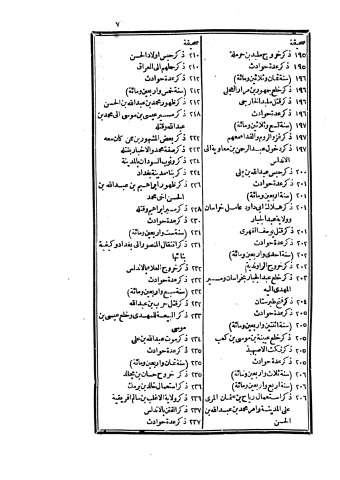 ٧
صحيفة
١٩٥ ذكر خروج ملبد بن حرملة
١٩٥ ذكر عدة حوادث
١٩٦ (سنة ثمان وثلاثين ومائة)
١٩٦ ذكر خلع جهور بن مرار العجلي
١٩٦ ذكر قتل ملبد الخارجي
١٩٦ ذكر عدة حوادث
١٩٧ (سنة تسع وثلاثين ومائة)
١٩٧ ذكر غزو الروم والفداء معهم
١٩٧ ذكر دخول عبد الرحمن بن معاوية الى
الاندلس
٢٠٠ ذكر حبس عبد الله بن علي
٢٠١ ذكر عدة حوادث
٢٠١ (سنة اربعين ومائة)
٢٠١ ذكر هلاك أبي داود عامل خراسان
وولاية عبد الجبار
٢٠١ ذكر قتل يوسف الفهري
٢٠٢ ذكر عدة حوادث
٢٠٢ (سنة احدى واربعين ومائة)
٢٠٢ ذكر خروج الراوندية
٢٠٣ ذكر خلع عبد الجبار بخراسان ومسير
المهدي اليه
٢٠٤ ذكر فتح طبرستان
٢٠٥ ذكر عدة حوادث
٢٠٥ (سنة اثنتين واربعين ومائة)
٢٠٥ ذكر خلع عيينة بن موسى بن كعب
٢٠٥ ذكر نكث الاصبهبذ
٢٠٥ ذكر عدة حوادث
٢٠٦ (سنة ثلاث واربعين ومائة)
٢٠٦ (سنة اربع واربعين ومائة)
٢٠٦ ذكر استعمال رياح بن عثمان المري
على المدينة وأمر محمد بن عبد الله بن
الحسن
صحيفة
٢١٠ ذكر حبس اولاد الحسن
٢١٠ ذكر حملهم الى العراق
٢١٢ ذكر عدة حوادث
٢١٢ (سنة خمس واربعين ومائة)
٢١٢ ذكر ظهور محمد بن عبد الله بن الحسن
٢١٨ ذكر مسير عيسى بن موسى الى محمد بن
عبد الله وقتله
٢٢٢ ذكر بعض المشهورين ممن كان معه
ذكر صفة محمد والاخبار بقتله
ذكر وثوب السودان بالمدينة
ذكر بناء مدينة بغداد
ذكر ظهور ابراهيم بن عبد الله بن
الحسن اخي محمد
٢٢٨ ذكر مسير ابراهيم وقتله
٢٣٠ ذكر عدة حوادث
٢٣١ (سنة ست واربعين ومائة)
٢٣١ ذكر انتقال المنصور الى بغداد وكيفية
بنائها
٢٣٢ ذكر خروج العلاء بالاندلس
ذكر عدة حوادث
(سنة سبع واربعين ومائة)
ذكر قتل حرب بن عبد الله
ذكر البيعة للمهدي وخلع عيسى بن
موسى
ذكر موت عبد الله بن علي
ذكر عدة حوادث
٢٣٥ (سنة ثمان واربعين ومائة)
٢٣٥ ذكر خروج حسان بن مجالد
٢٣٦ ذكر استعمال خالد بن برمك
٢٣٦ ذكر ولاية الاغلب بن سالم افريقية
ذكر الفتن بالاندلس
٢٣٧ ذكر عدة حوادث